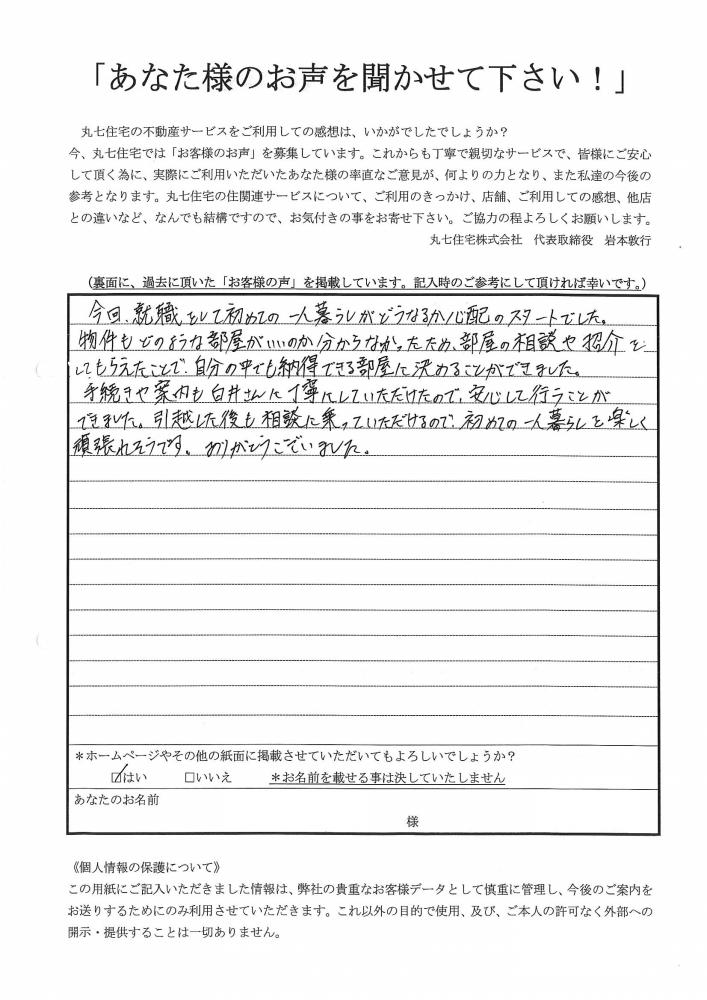 「あなた様のお声を聞かせて下さい！」
丸七住宅の不動産サービスをご利用しての感想は、いかがでしたでしょうか？
今、丸七住宅では「お客様のお声」を募集しています。これからも丁寧で親切なサービスで、皆様にご安心
して頂く為に、実際にご利用いただいたあなた様の率直なご意見が、何よりの力となり、また私達の今後の
参考となります。丸七住宅の住関連サービスについて、ご利用のきっかけ、店舗、ご利用しての感想、他店
との違いなど、なんでも結構ですので、お気付きの事をお寄せ下さい。ご協力の程よろしくお願いします。
丸七住宅株式会社　代表取締役　岩本敦行
（裏面に、過去に頂いた「お客様の声」を掲載しています。記入時のご参考にして頂ければ幸いです。）
今回、就職をして初めての一人暮らしがどうなるか心配のスタートでした。
物件もどのような部屋がいいのか分からなかったため、部屋の相談や紹介を
してもらえたことで、自分の中でも納得できる部屋に決めることができました。
手続きや案内も白井さんに丁寧にしていただけたので、安心して行うことが
できました。引越した後も相談に乗っていただけるので、初めての一人暮らしを楽しく
頑張れそうです。ありがとうございました。
＊ホームページやその他の紙面に掲載させていただいてもよろしいでしょうか？
☑はい　□いいえ　＊お名前を載せる事は決していたしません
あなたのお名前
様
《個人情報の保護について》
この用紙にご記入いただきました情報は、弊社の貴重なお客様データとして慎重に管理し、今後のご案内を
お送りするためにのみ利用させていただきます。これ以外の目的で使用、及び、ご本人の許可なく外部への
開示・提供することは一切ありません。